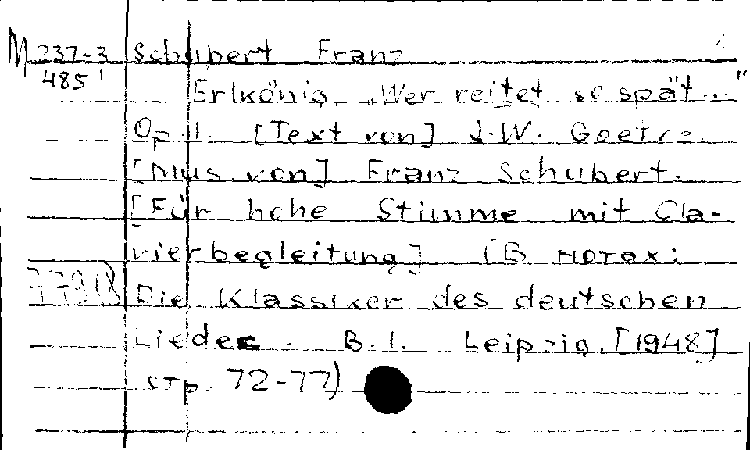 M 237-3 Schubert Franz
485
Erlkönig „Wer reitet so spät..."
Op. 1. [Text von] J.W. Goethe.
[Mus. von] Franz Schubert.
[Für hohe Stimme mit Cla-
vierbegleitung] (В нотах:
Die Klassiker des deutschen
Liedes. B.I. Leipzig. [1948]
стр. 72-77)